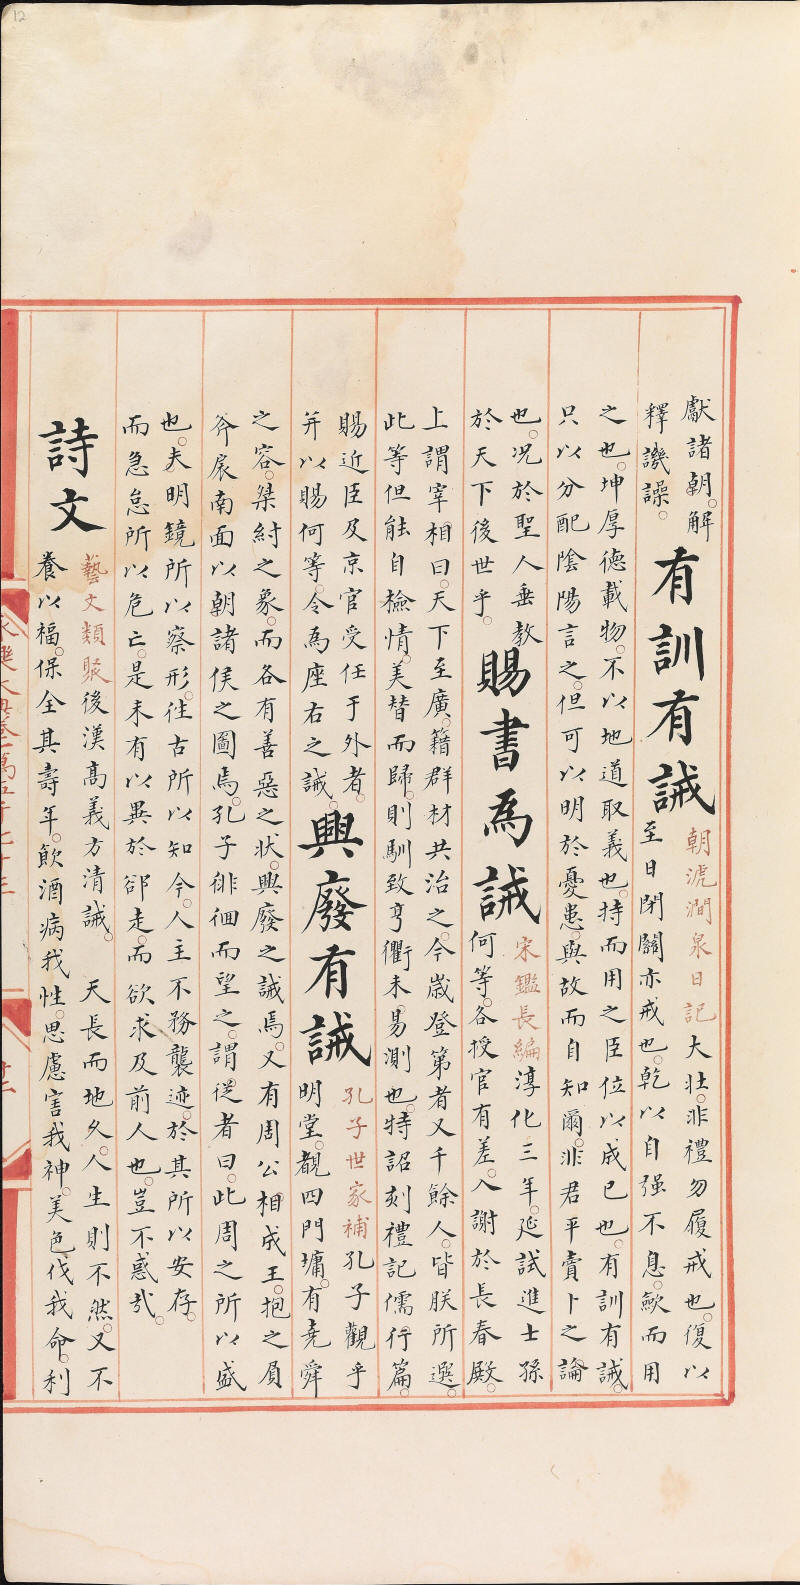 獻諸朝。解
釋譏譟。
有訓有誡
朝漉澗泉日記大壯。非禮勿履戒也。復以
至日閉關亦戒也。乾以自强不息。歟而用
之也。坤厚德載物。不以地道取義也。持而用之臣位以成已也。有訓有誡。
只以分配陰陽言之。但可以明於憂患。與故而自知爾。非君平賣卜之論
也。况於聖人垂教
於天下後世乎。
賜書為誡
宋鑑長編淳化三年。延試進士孫
何等。各授官有差。入謝於長春殿。
上謂宰相曰。天下至廣。籍群材共治之。今歲登第者又千餘人。皆朕所選。
此等但能自檢情。美替而歸。則馴致亨衢未易測也。特詔刻禮記儒行篇。
賜近臣及京官受任于外者。
并以賜何等。令為座右之誡。
興廢有誡
孔子世家補孔子觀乎
明堂。覩四門墉。有堯舜
之容。桀紂之象。而各有善惡之状。興廢之誡焉。又有周公相成王。抱之負
斧扆南面以朝諸侯之圖焉。孔子徘徊而望之。謂從者曰。此周之所以盛
也。夫明鏡所以察形。往古所以知今。人主不務襲迹於其所以安存。
而急怠所以危亡。是未有以異於郤走。而欲求及前人也。豈不惑哉。
詩文
藝文類聚後漢高義方清誡。 天長而地久。人生則不然。又不
養以福。保全其壽年。飲酒病我性。思慮害我神。美色伐我命。利
永樂大典卷一萬五千七十三
十二
12